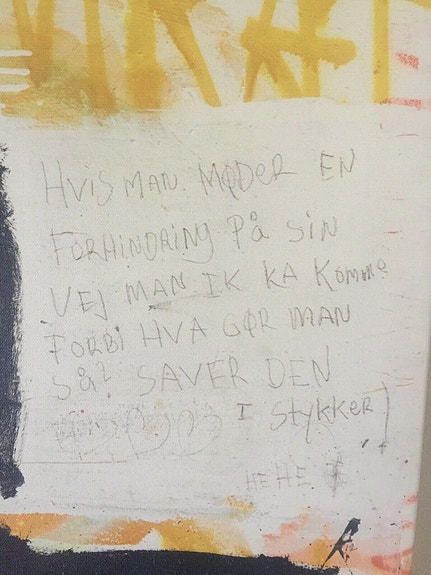 HVIS MAN MØDER EN
FORHINDRING På SIN
VEJ MAN IK KA Komme
FORBI HVA GØR MAN
Så? SAVER DEN
I StykkER
HE HE